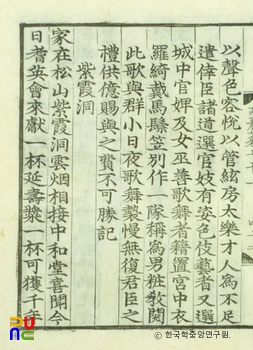 以聲色容悅以管絃房太樂才人爲不足
遣倖臣諸道選官妓有姿色伎藝者又選
城中官婢及女巫善歌舞者籍置宮中衣
羅綺戴馬鬃笠別作一隊稱爲男粧敎閱
此歌與群小日夜歌舞褻慢無復君臣之
禮供億賜與之費不可勝記
紫霞洞
家在松山紫霞洞雲烟相接中和堂喜聞今
日耆英會來獻一杯延壽漿一杯可獲千年
ⓒ 한국학중앙연구원.